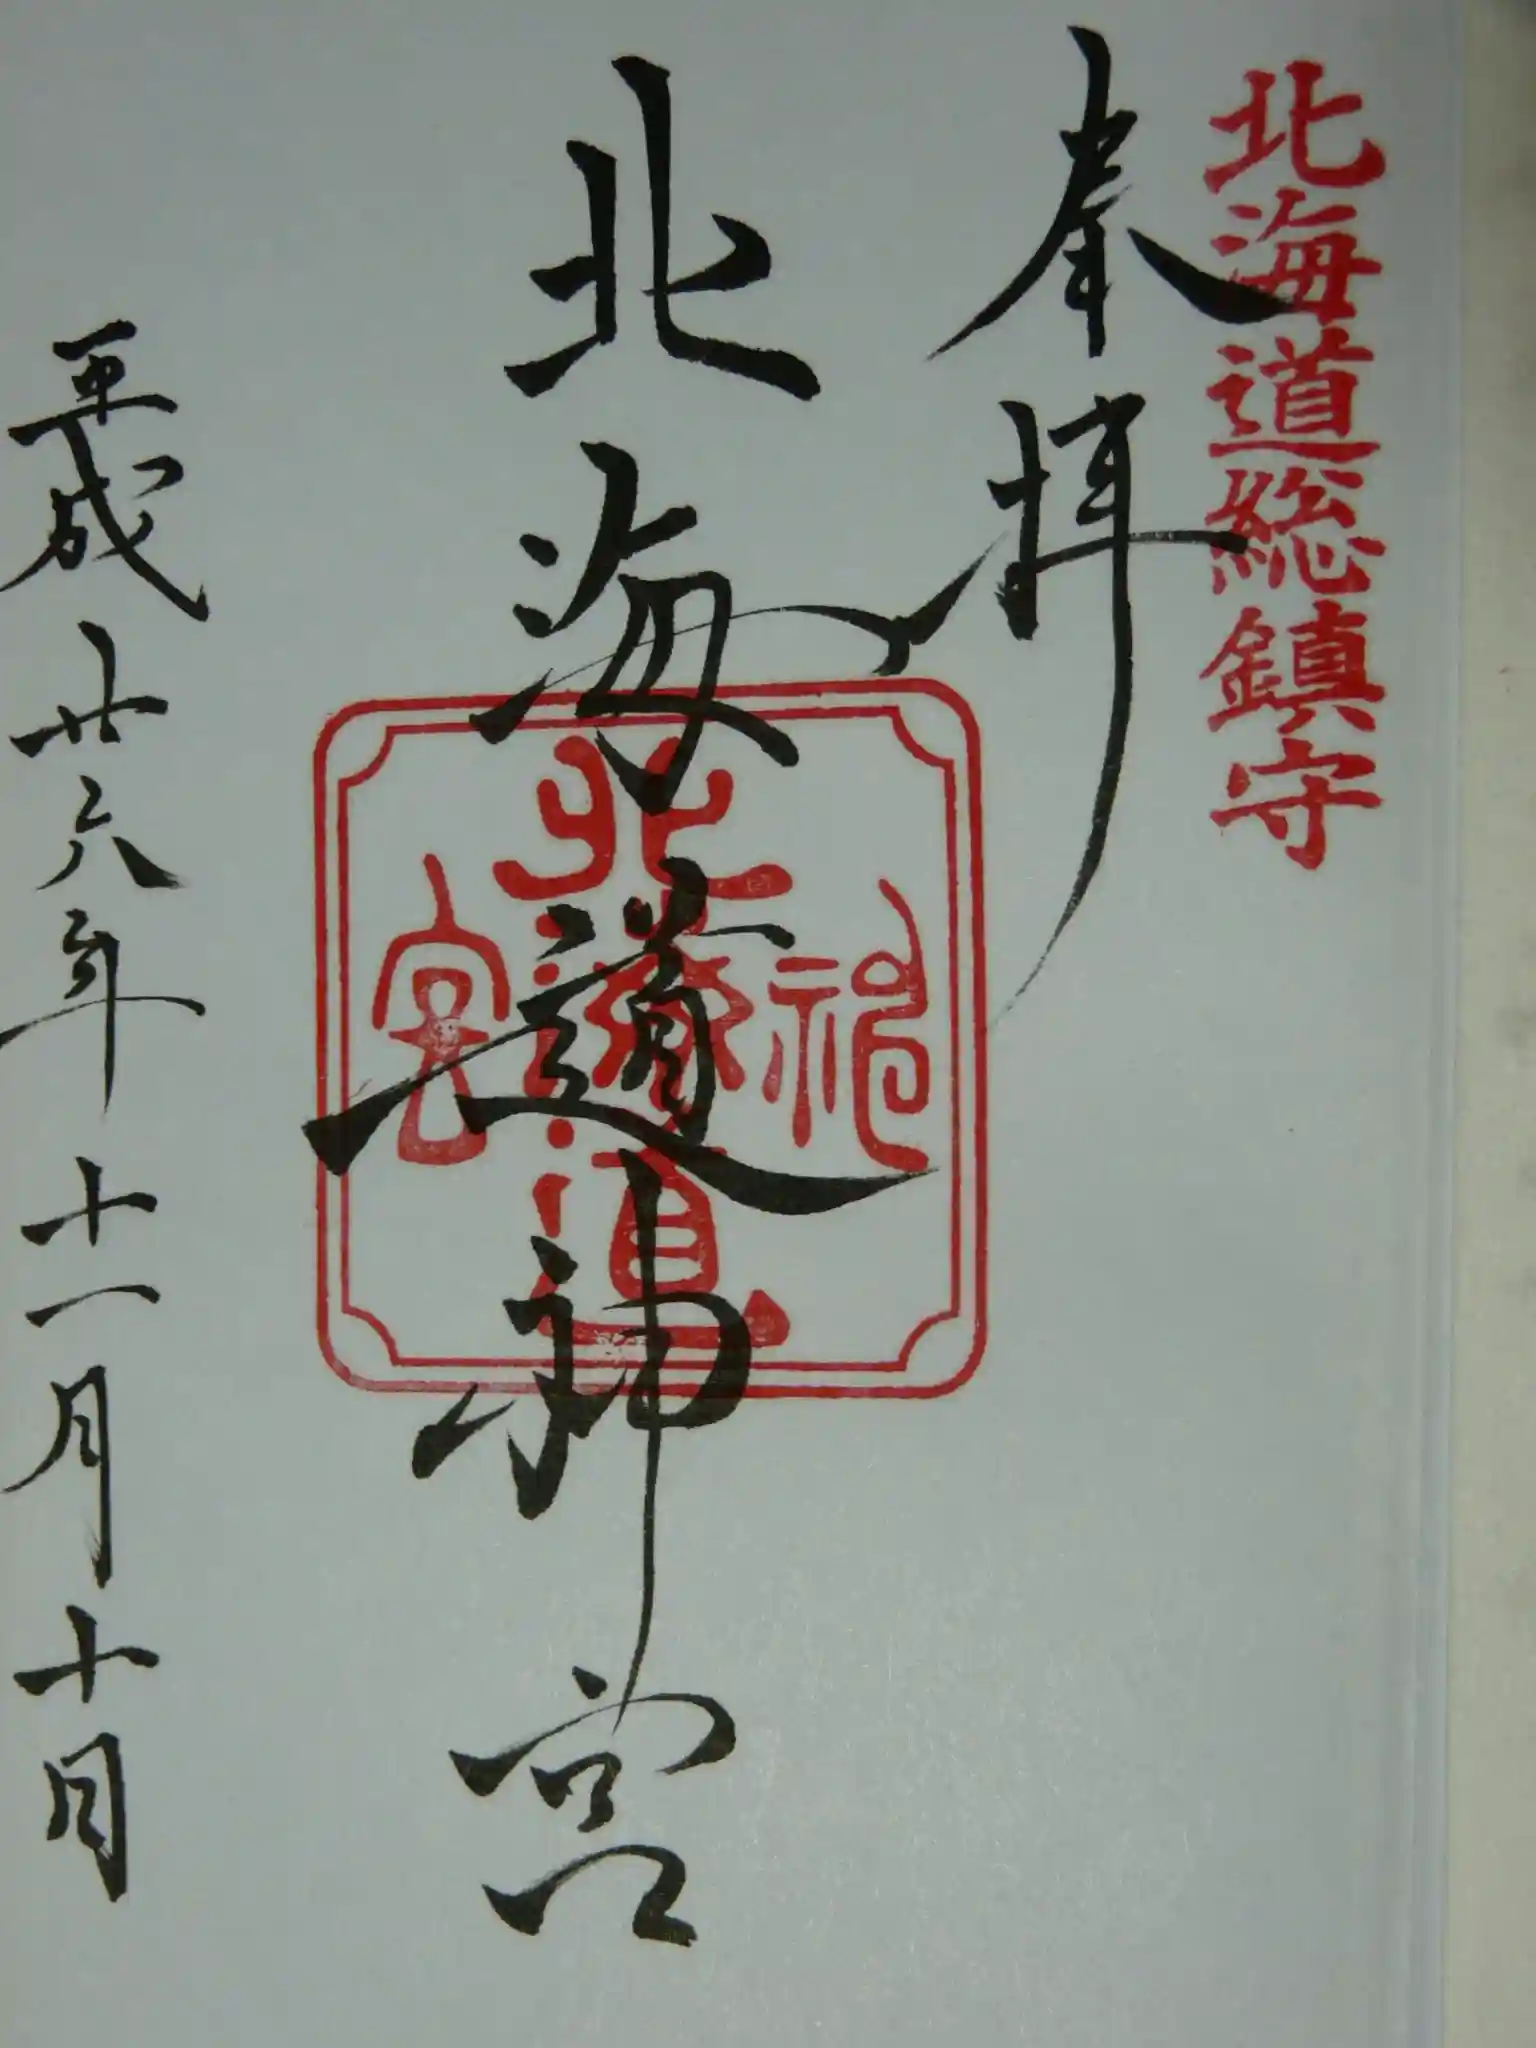 北海道総鎮守
奉拝
北海道神宮
北海道神宮
平成廿六年十一月十日